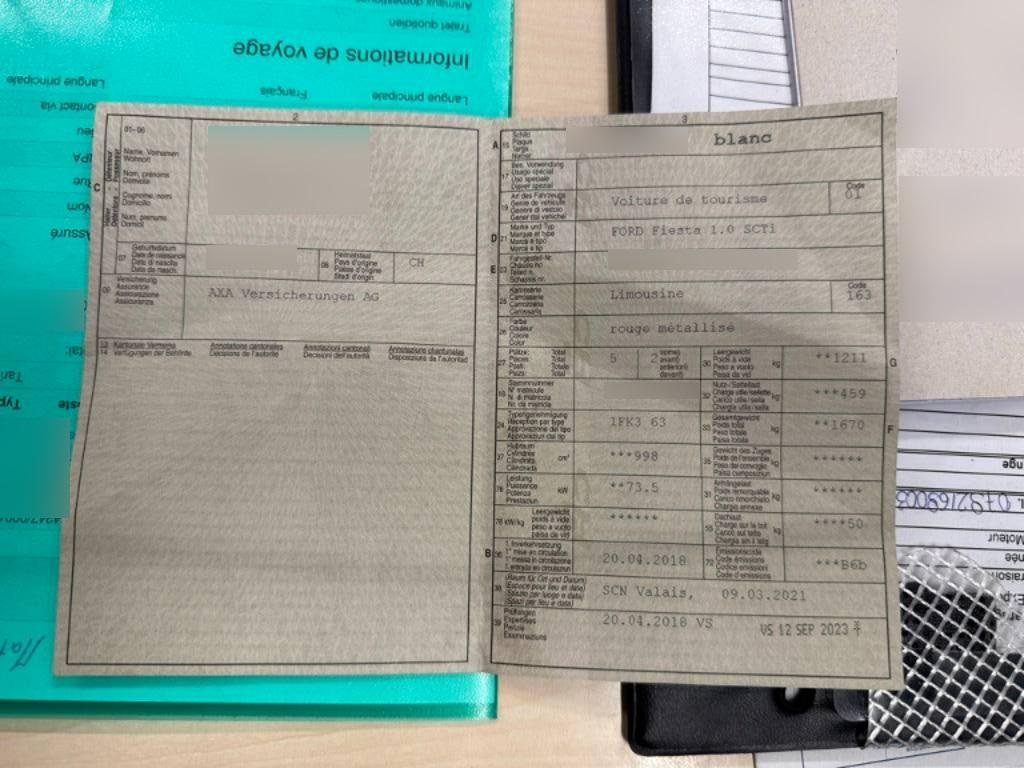 Animaux domestiques
Trajet quotidien
Informations de voyage
Langue principale
Français
Langue principale
Contact via
2
01-06
C
Name, Vornamen
Wohnort
Nom, prénoms
Domicile
Cognome, nomi
Domicilio
Num, prenums
Domicil
07
Geburtsdatum
Date de naissance
Data di nascita
Data da nasch.
08
Heimatstaat
Pays d'origine
Paese d'origine
Stadi d'origin
CH
09
Versicherung
Assurance
Assicurazione
Assicuranza
AXA Versicherungen AG
13
14
Kantonale Vermerke
Verfügungen der Behörde
Annotations cantonales
Décisions de l'autorité
Annotazioni cantonali
Decisioni dell'autorità
Annotaziuns chantunalas
Disposiziuns da l'autoritad
3
A 15
Schild
Plaque
Targa
Numer
blanc
17
Bes. Verwendung
Usage spécial
Uso speciale
Diever spezial
19
Art des Fahrzeugs
Genre de véhicule
Genere di veicolo
Gener dal vehichel
Voiture de tourisme
Code
01
D 21
Marke und Typ
Marque et type
Marca e tipo
Marca e tip
FORD Fiesta 1.0 SCTi
E 23
Fahrgestell-Nr.
Châssis no
Telaio n.
Schassis nr.
25
Karosserie
Carrosserie
Carrozzeria
Carossaria
Limousine
Code
163
26
Farbe
Couleur
Colore
Colur
rouge métallisé
27
Plätze: Total
Places: Total
Posti: Totale
Plazs: Total
5
2
vorne)
avant)
anteriori)
davant)
30
Leergewicht
Poids à vide
Peso a vuoto
Paisa da vid
kg
**1211
G
18
Stammnummer
N° matricule
N. di matricola
Nr. da matricla
32
Nutz-/Sattellast
Charge utile/sellette
Carico utile/sella
Chargia utila/sella
kg
***459
24
Typengenehmigung
Réception par type
Approvazione del tipo
Approvaziun dal tip
1FK3 63
33
Gesamtgewicht
Poids total
Peso totale
Paisa totala
kg
**1670
F
37
Hubraum
Cylindrée
Cilindrata
Cilindrada
cm³
***998
35
Gewicht des Zuges
Poids de l'ensemble
Peso del convoglio
Paisa cumposiziun
kg
******
76
Leistung
Puissance
Potenza
Prestaziun
kW
**73.5
31
Anhängelast
Poids remorquable
Carico rimorchiato
Chargia annexa
kg
******
78 kW/kg
Leergewicht
poids à vide
peso a vuoto
paisa da vid
******
55
Dachlast
Charge sur le toit
Carico sul tetto
Chargia sin il tetg
kg
****50
B 36
1. Inverkehrsetzung
1re mise en circulation
1a messa in circolazione
1. entrada en circulaziun
20.04.2018
72
Emissionscode
Code émissions
Codice emissioni
Code d'emissiuns
***B6b
38
(Raum für Ort und Datum)
(Espace pour lieu et date)
(Spazio per luogo e data)
(Spazi per lieu e data)
SCN Valais, 09.03.2021
39
Prüfungen
Expertises
Perizie
Examinaziuns
20.04.2018 VS
VS 12 SEP 2023
Moteur